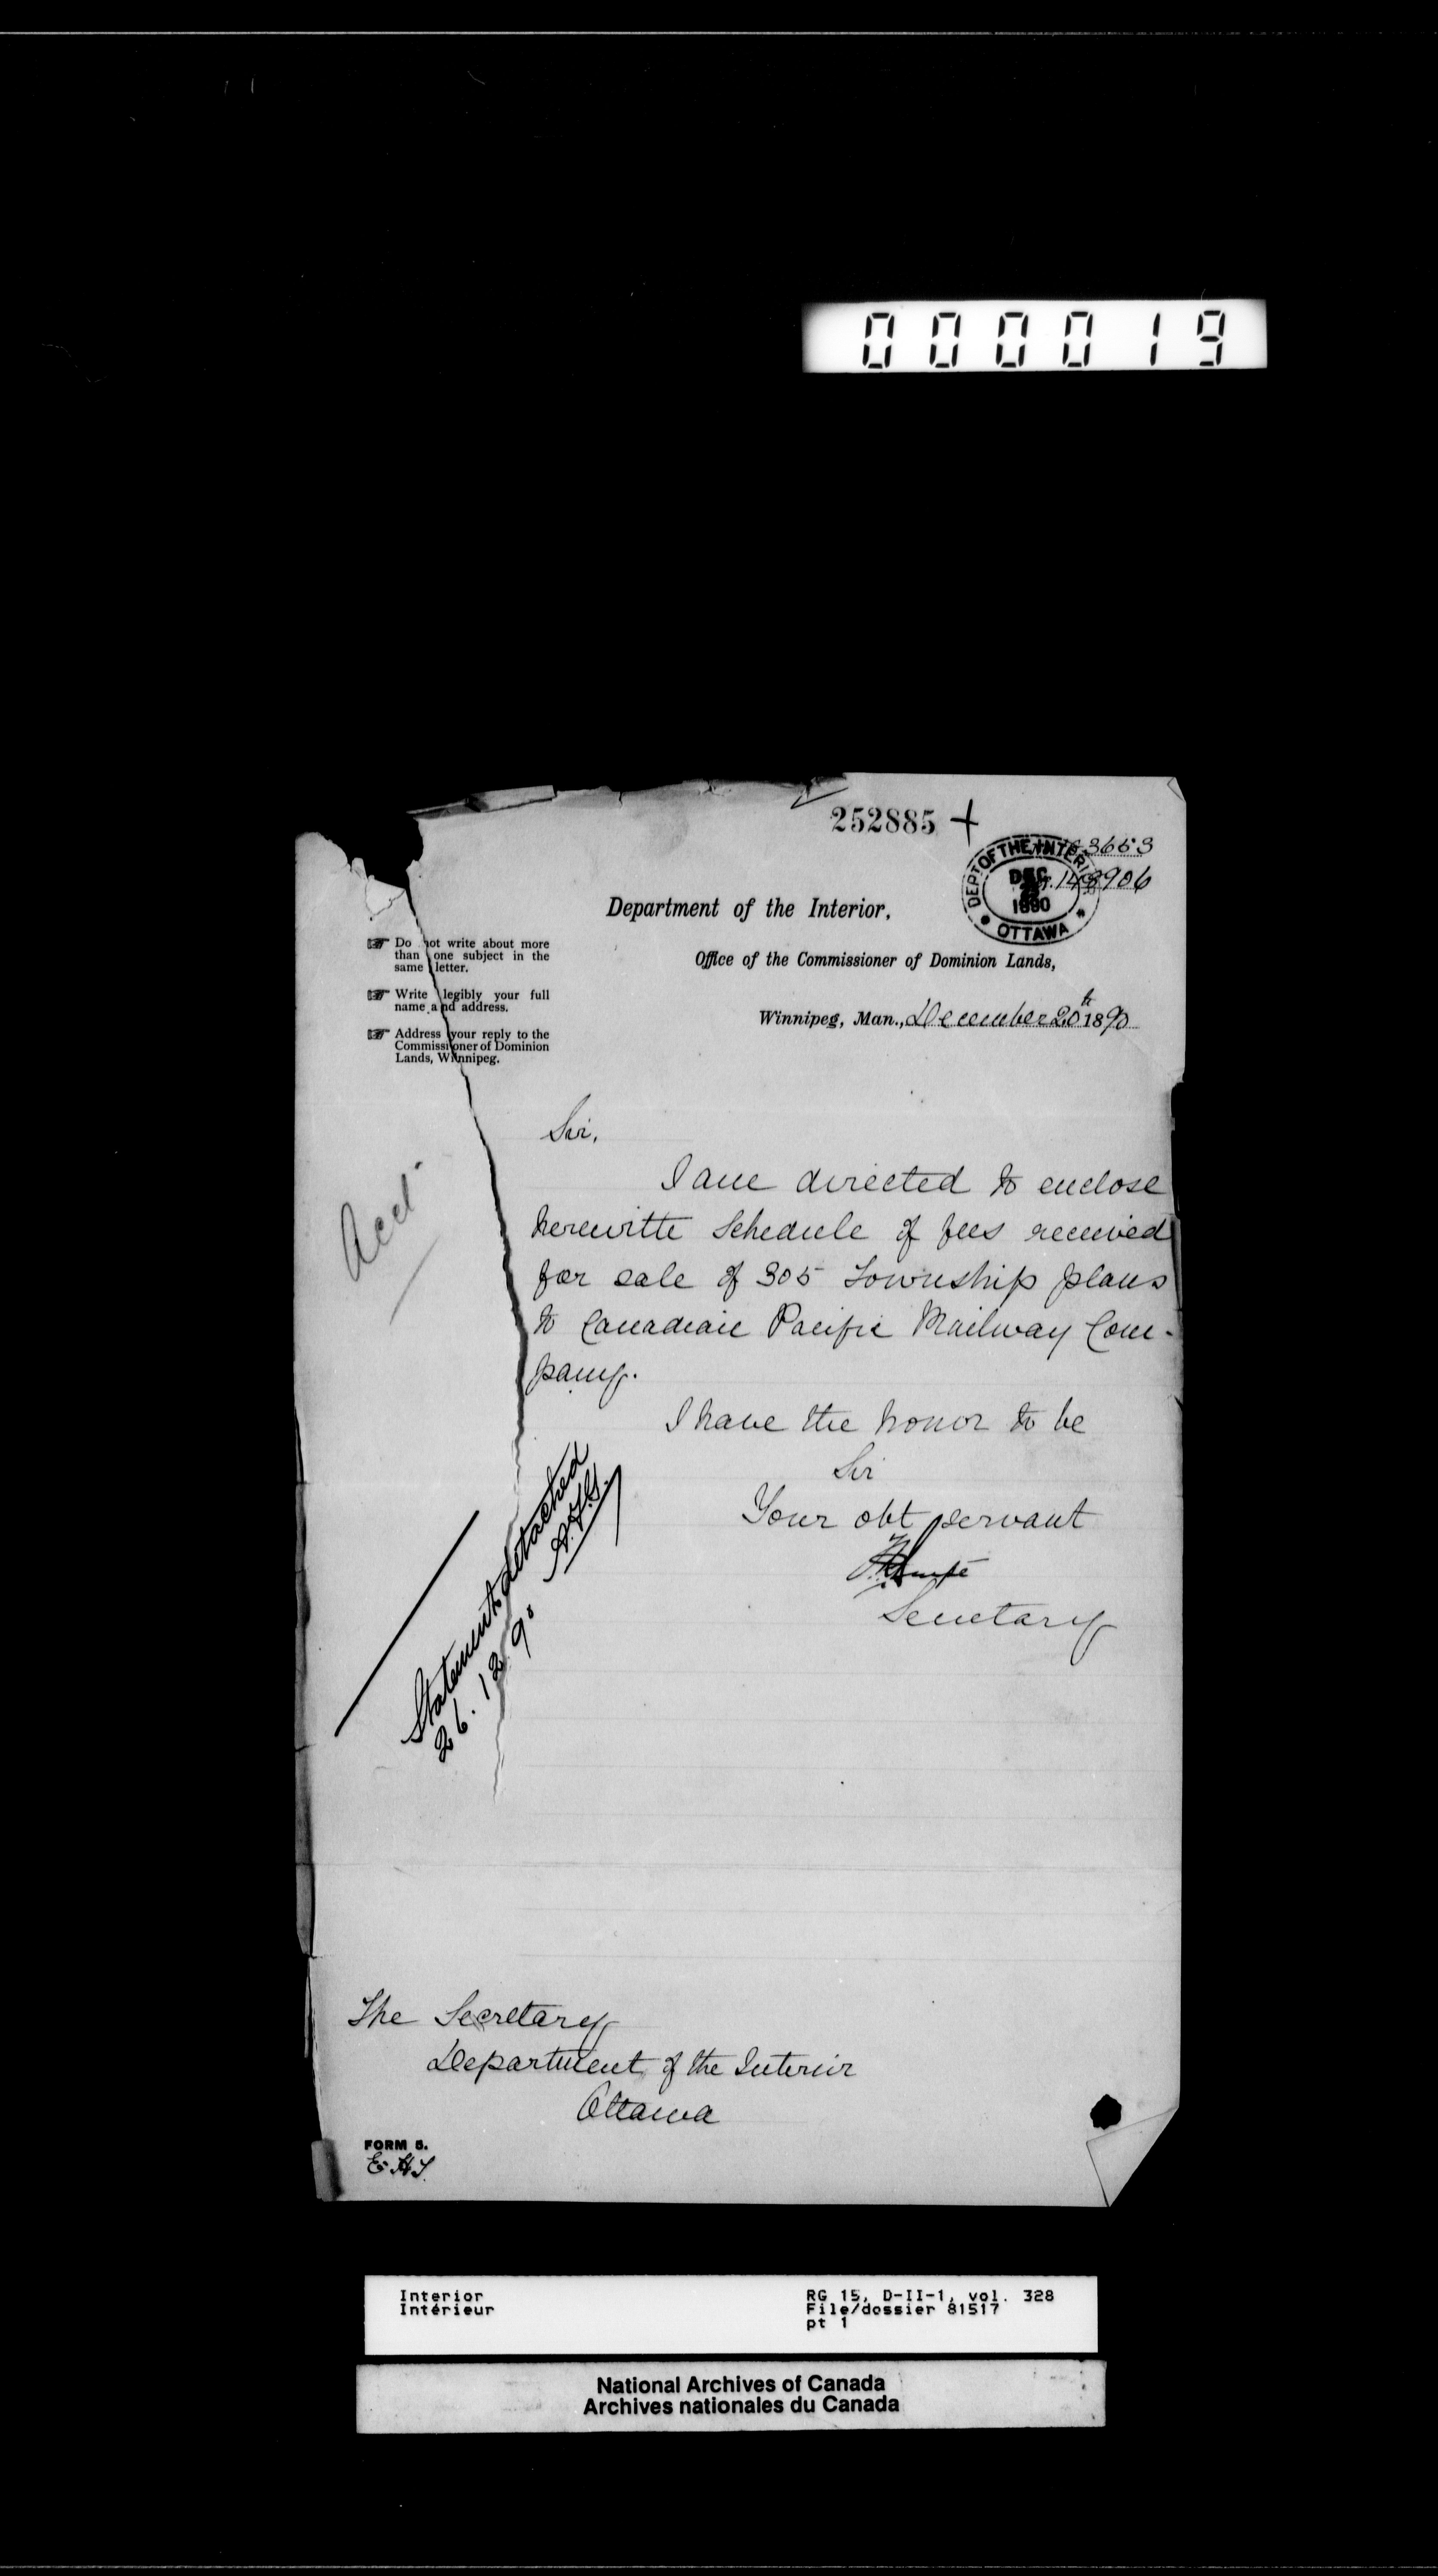 000019
252885 +
3653
148906
DEPT OF THE INTERIOR
DEC
1890
OTTAWA
Department of the Interior,
Office of the Commissioner of Dominion Lands,
Winnipeg, Man., December 20th 1890
Do not write about more
than one subject in the
same letter.
Write legibly your full
name and address.
Address your reply to the
Commissioner of Dominion
Lands, Winnipeg.
Sir,
I am directed to enclose
herewith Schedule of fees received
for sale of 305 Township plans
to Canadian Pacific Railway Com-
pany.
I have the honor to be
Sir
Your obt servant
Secretary
Statements detached
26.12.90
The Secretary
Department of the Interior
Ottawa
FORM 5.
Interior
Intérieur
RG 15, D-II-1, vol. 328
File/dossier 81517
pt 1
National Archives of Canada
Archives nationales du Canada